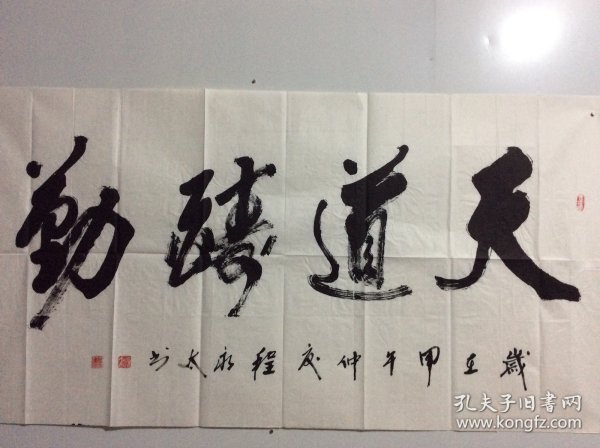 天道酬勤
歲在甲午仲夏程永太书
孔夫子旧书网
www.kongfz.com